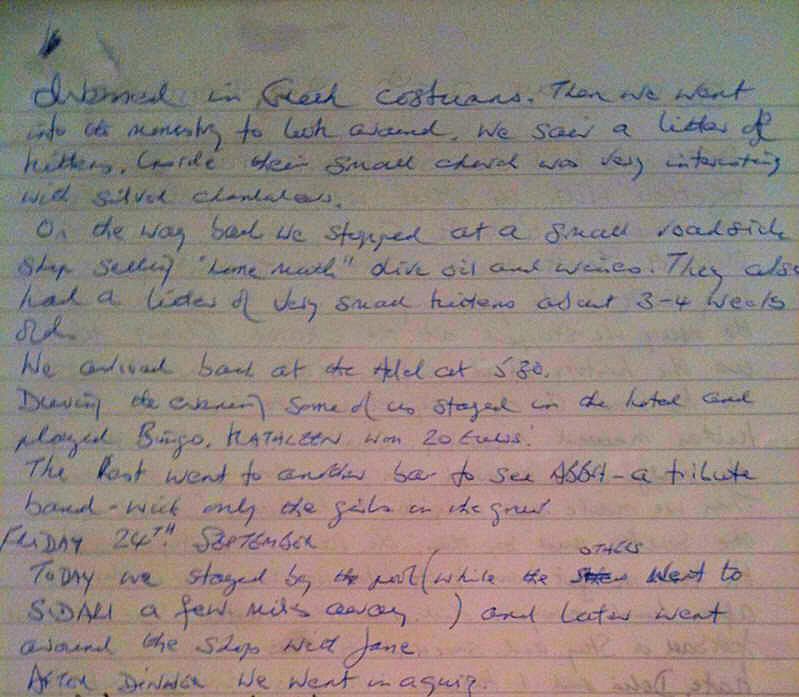 dressed in Greek costumes. Then we went
into the monestry to look around. We saw a litter of
kittens. Inside their small church was very interesting
with silver chandaliers.
On the way back we stopped at a small roadside
shop selling "home made" olive oil and wines. They also
had a litter of very small kittens about 3-4 weeks
old.
We arrived back at the Hotel at 530.
During the evening some of us stayed in the hotel and
played Bingo. KATHLEEN won 20 Euros!
The Rest went to another bar to see ABBA - a tribute
band - with only the girls in the group.
FRIDAY 24TH. SEPTEMBER
TODAY we stayed by the pool (while the OTHERS went to
SIDARI a few miles away ) and later went
around the shops with Jane.
AFTER DINNER we went in a quiz.